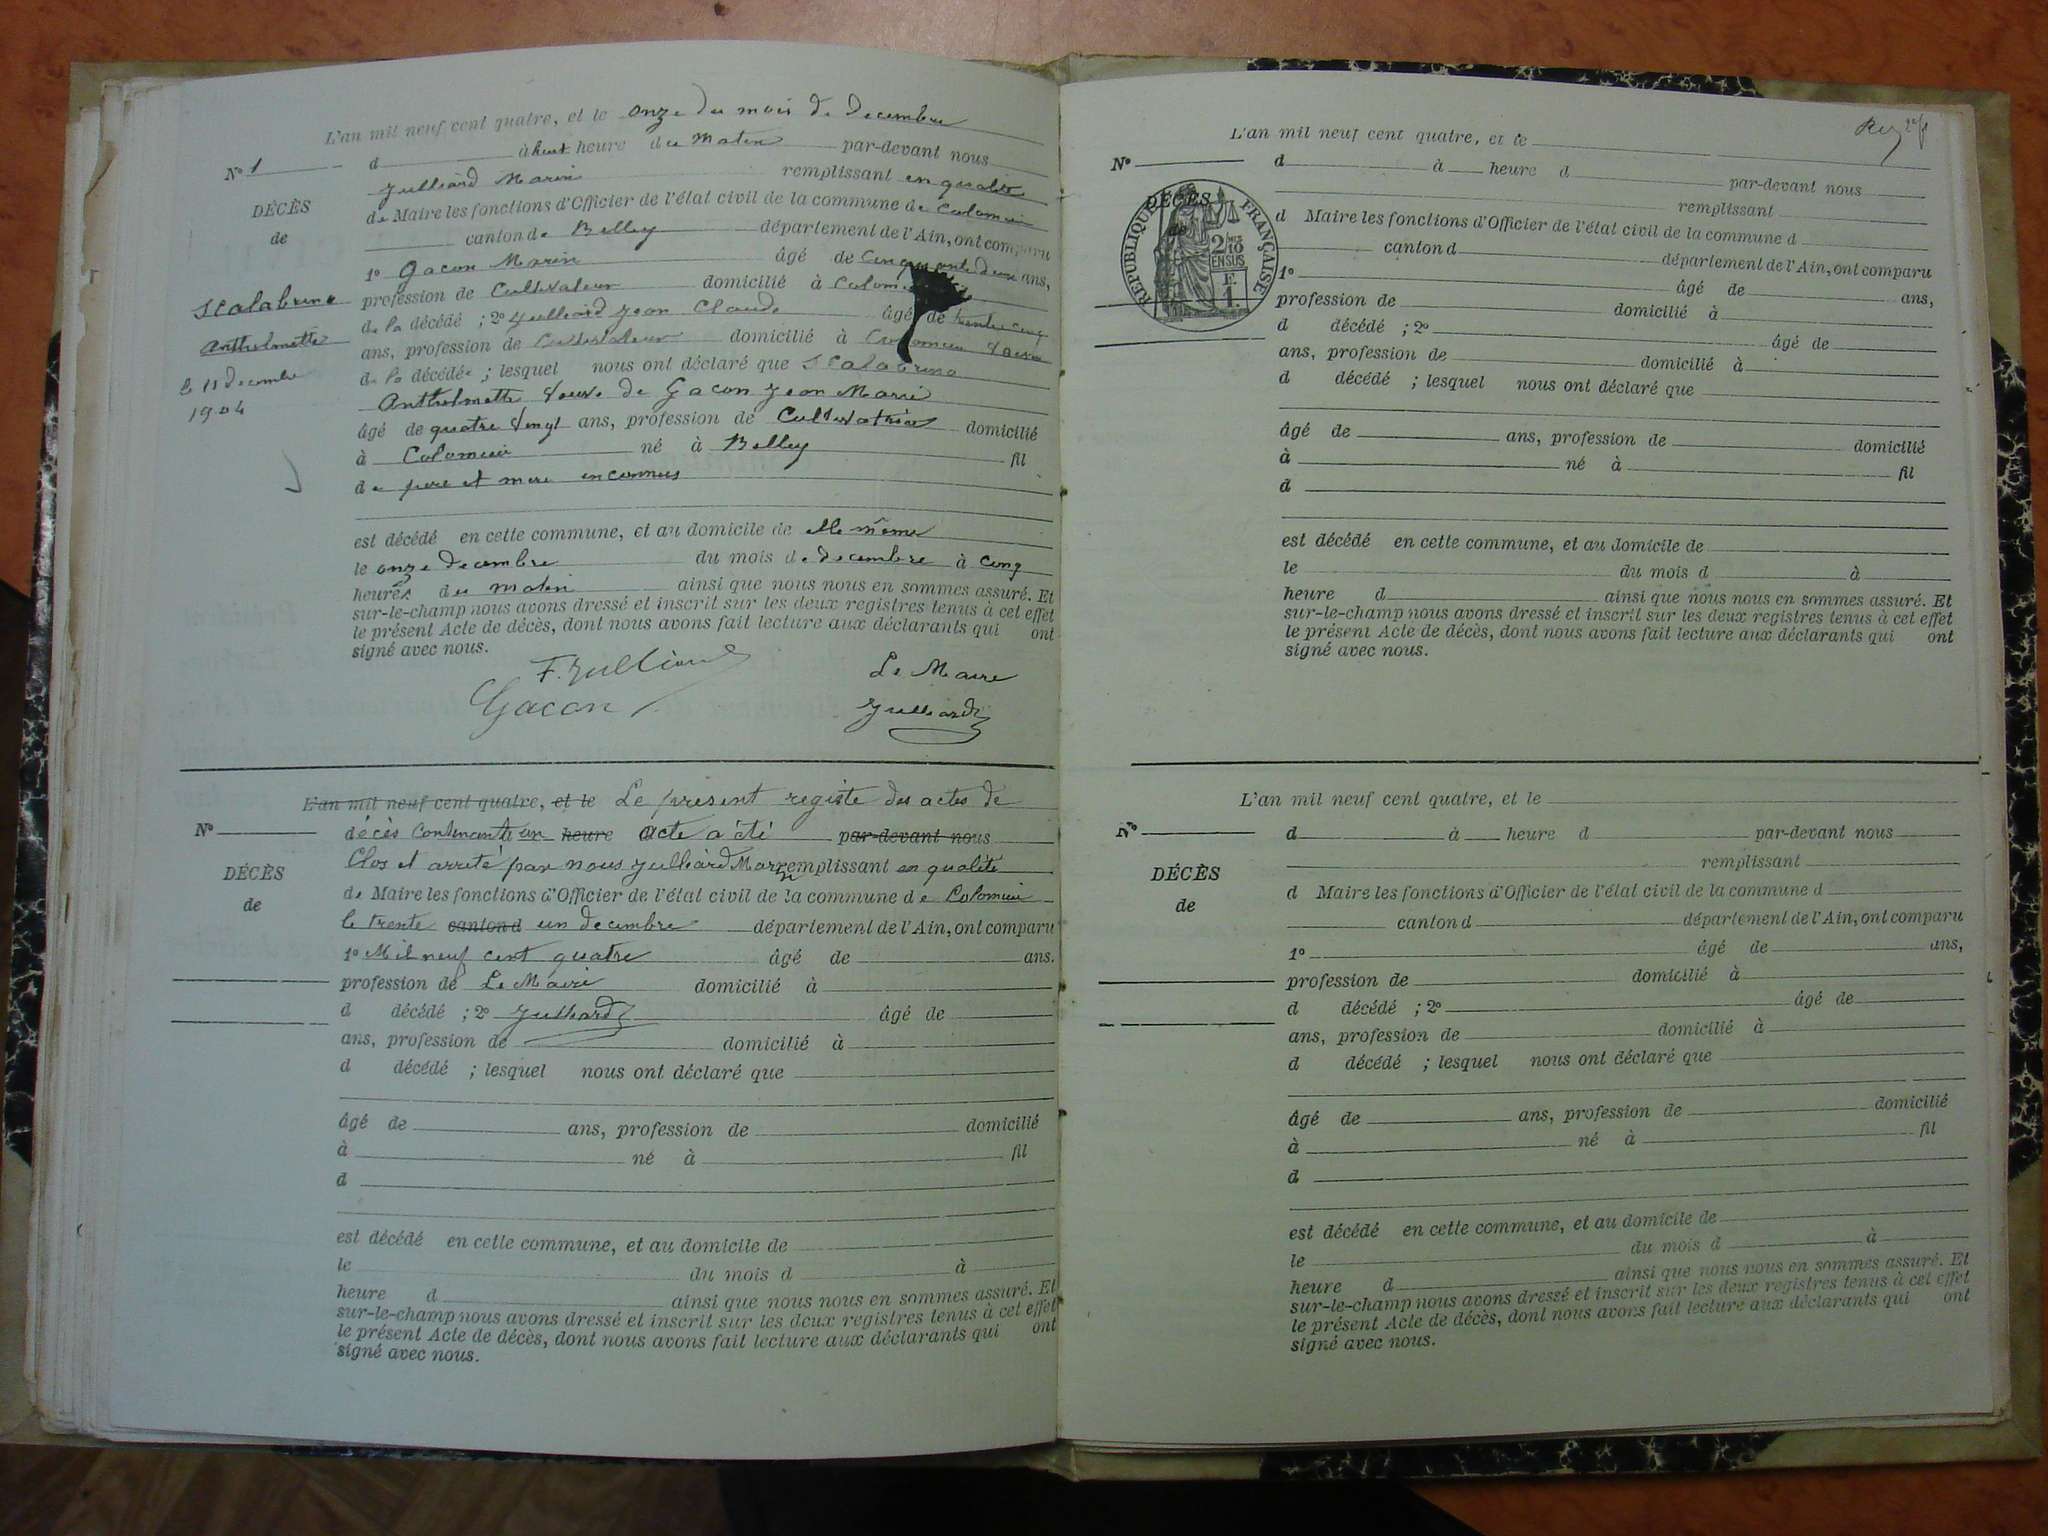 L'an mil neuf cent quatre, et le onze du mois de decembre
N° 1 d à huit heure du Matin par-devant nous
Julliard Marin remplissant en qualité
DÉCÈS
de
de Maire les fonctions d'Officier de l'état civil de la commune de Colomieu
canton de Belley département de l'Ain, ont comparu
1° Gacon Marin âgé de cinquante deux ans,
Scalabrino
Anthelmette
le 11 decembre
1904
profession de Cultivateur domicilié à
de la décédé ; 2° Julliard Jean Claude âgé de trente cinq
ans, profession de Cultivateur domicilié à Colomieu
de la décédée ; lesquel nous ont déclaré que Scalabrino
Anthelmette veuve de Gacon Jean Marie
âgé de quatre vingt ans, profession de Cultivatrice domicilié
à Colomieu né à Belley fil
de pere et mere inconnus
est décédé en cette commune, et au domicile de elle même
le onze decembre du mois de decembre à cinq
heures du matin ainsi que nous nous en sommes assuré. Et
sur-le-champ nous avons dressé et inscrit sur les deux registres tenus à cet effet
le présent Acte de décès, dont nous avons fait lecture aux déclarants qui ont
signé avec nous.
F. Julliard
Gacon
Le Maire
Julliard
L'an mil neuf cent quatre, et le Le présent registe des actes de
N° décès contenant un heure acte a été par-devant nous
Clos et arreté par nous Julliard Marin remplissant en qualité
DÉCÈS
de
de Maire les fonctions d'Officier de l'état civil de la commune de Colomieu
le trente canton d un decembre département de l'Ain, ont comparu
1° Mil neuf cent quatre âgé de ans.
profession de Le Maire domicilié à
d décédé ; 2° Julliard âgé de
ans, profession de domicilié à
d décédé ; lesquel nous ont déclaré que
âgé de ans, profession de domicilié
à né à fil
d
est décédé en cette commune, et au domicile de
le du mois d à
heure d ainsi que nous nous en sommes assuré. Et
sur-le-champ nous avons dressé et inscrit sur les deux registres tenus à cet effet
le présent Acte de décès, dont nous avons fait lecture aux déclarants qui ont
signé avec nous.
L'an mil neuf cent quatre, et le
N° d à heure d par-devant nous
remplissant
DÉCÈS
de
RÉPUBLIQUE FRANÇAISE
2 MES 10
EN SUS
F.
1.
d Maire les fonctions d'Officier de l'état civil de la commune d
canton d département de l'Ain, ont comparu
1° âgé de ans,
profession de domicilié à
d décédé ; 2° âgé de
ans, profession de domicilié à
d décédé ; lesquel nous ont déclaré que
âgé de ans, profession de domicilié
à né à fil
d
est décédé en cette commune, et au domicile de
le du mois d à
heure d ainsi que nous nous en sommes assuré. Et
sur-le-champ nous avons dressé et inscrit sur les deux registres tenus à cet effet
le présent Acte de décès, dont nous avons fait lecture aux déclarants qui ont
signé avec nous.
L'an mil neuf cent quatre, et le
N° d à heure d par-devant nous
remplissant
DÉCÈS
de
d Maire les fonctions d'Officier de l'état civil de la commune d
canton d département de l'Ain, ont comparu
1° âgé de ans,
profession de domicilié à
d décédé ; 2° âgé de
ans, profession de domicilié à
d décédé ; lesquel nous ont déclaré que
âgé de ans, profession de domicilié
à né à fil
d
est décédé en cette commune, et au domicile de
le du mois d à
heure d ainsi que nous nous en sommes assuré. Et
sur-le-champ nous avons dressé et inscrit sur les deux registres tenus à cet effet
le présent Acte de décès, dont nous avons fait lecture aux déclarants qui ont
signé avec nous.